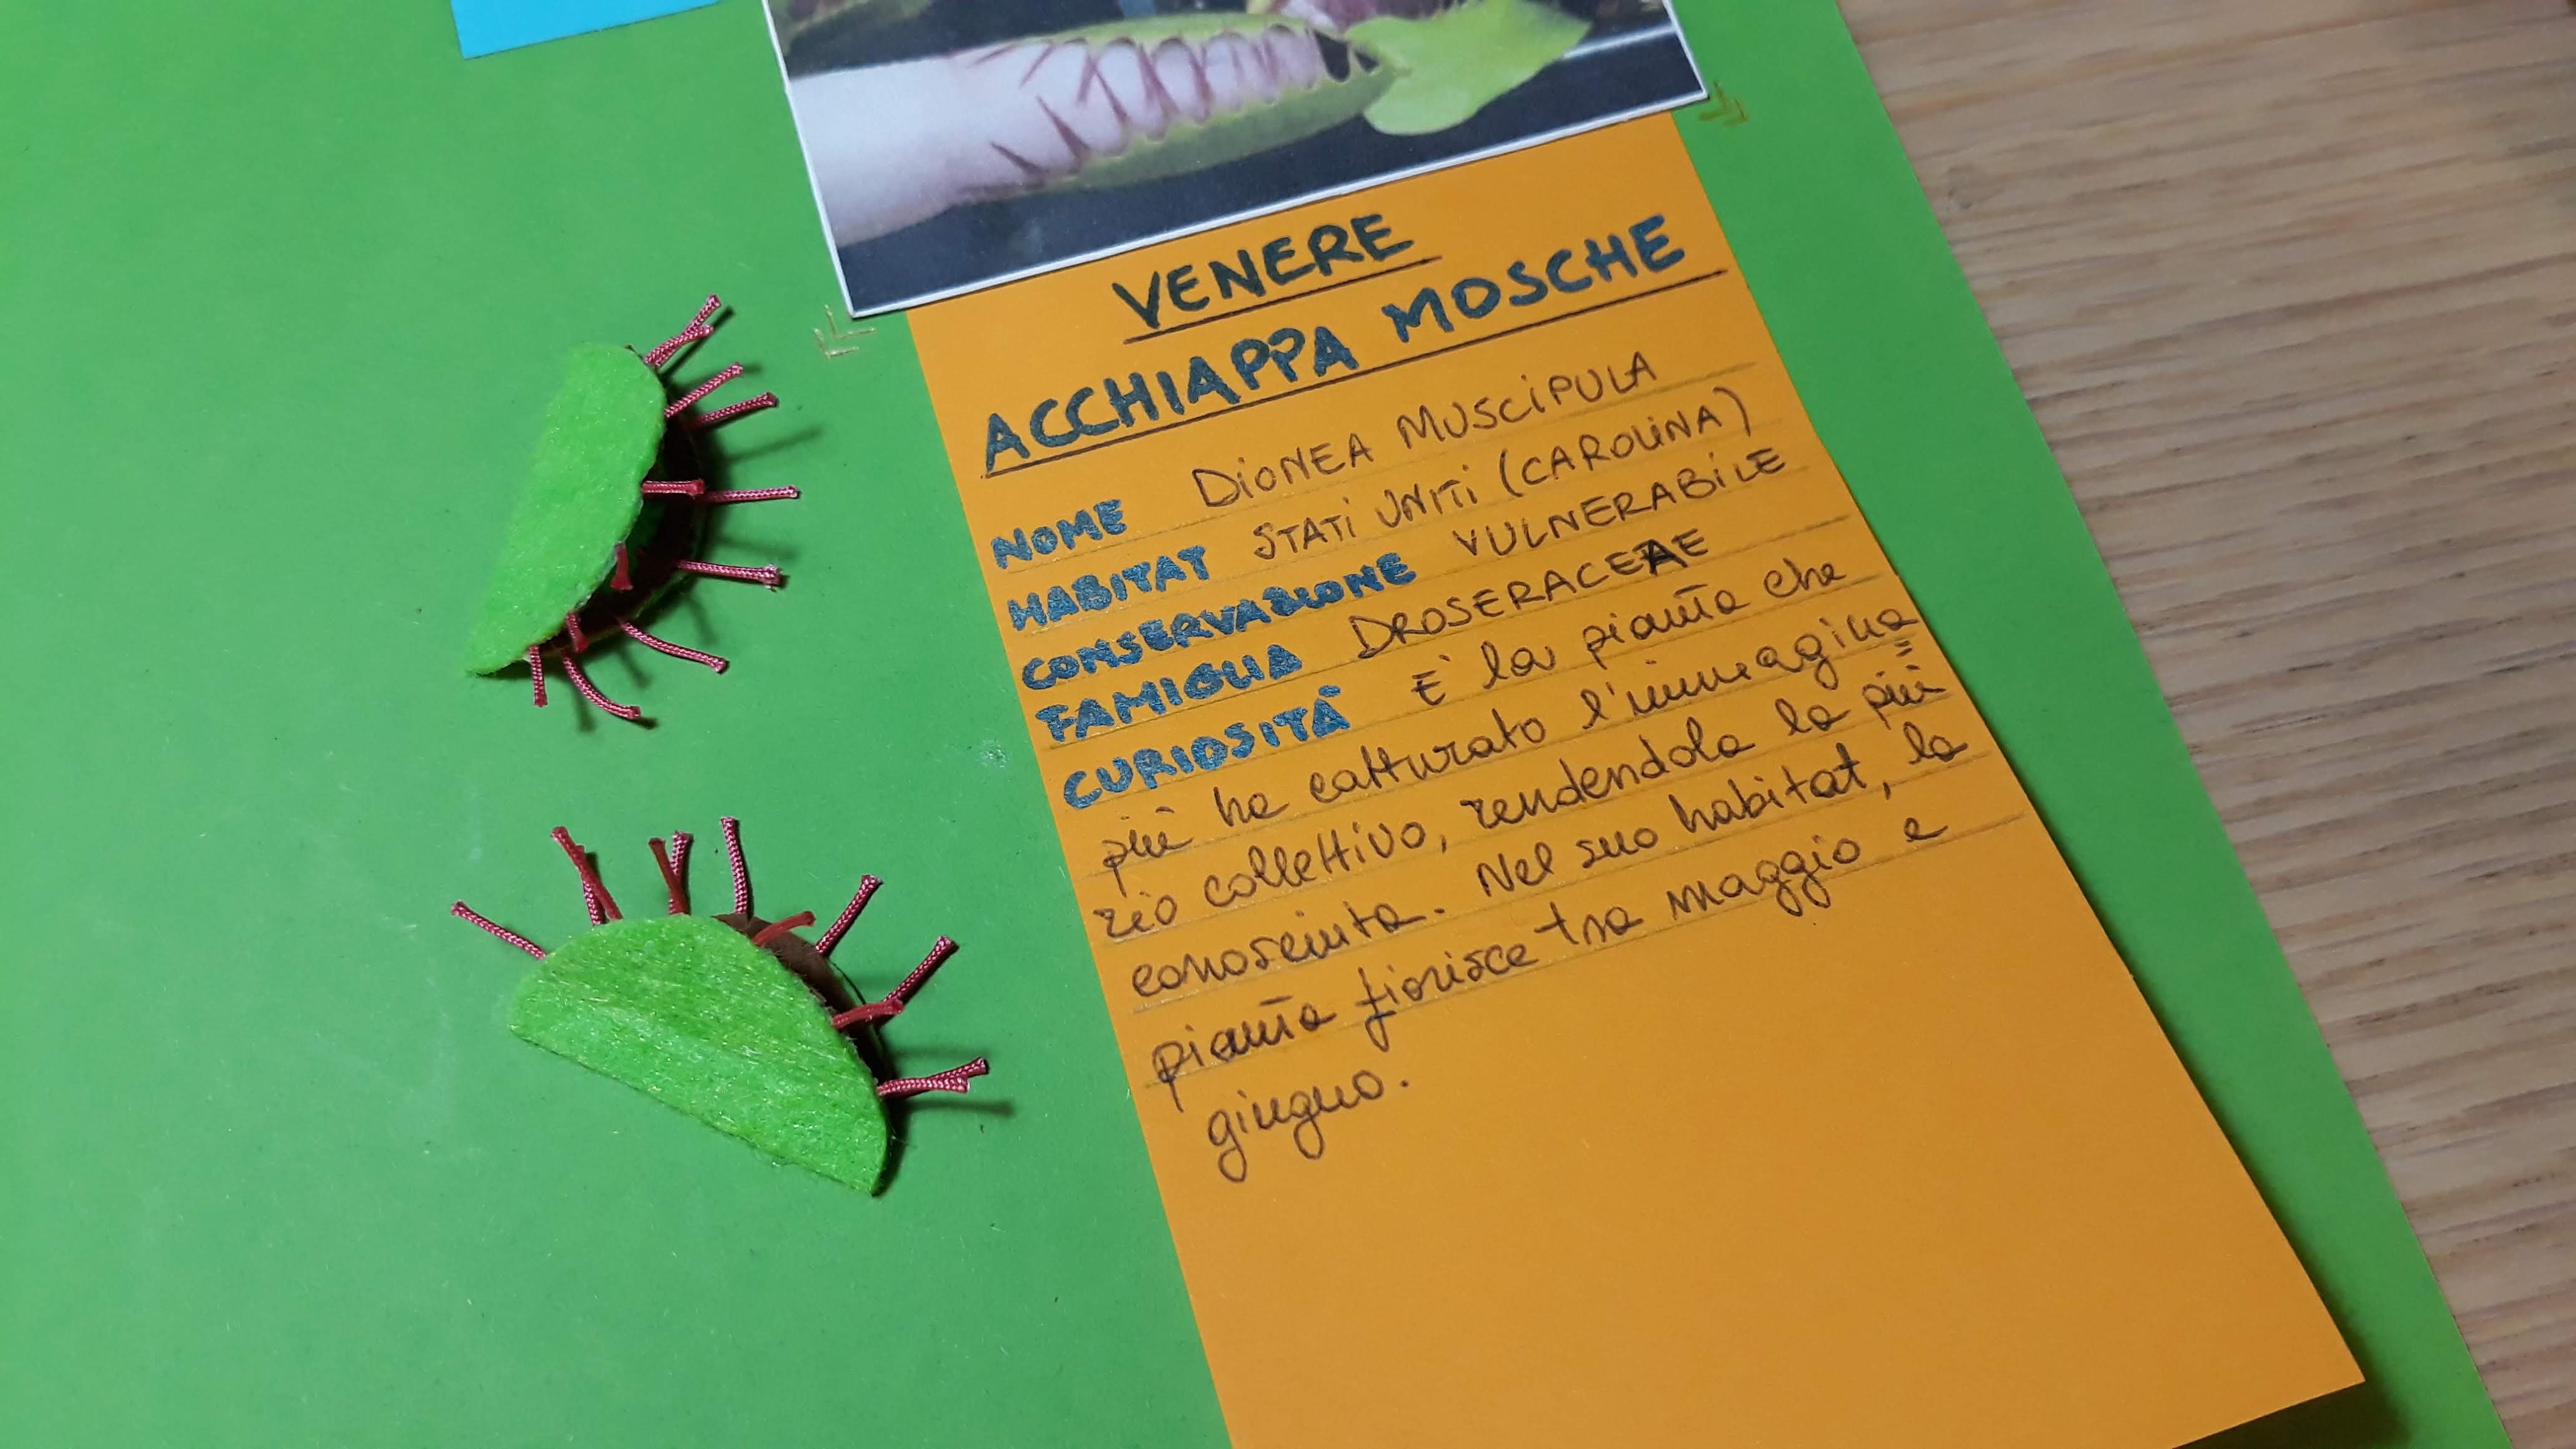 VENERE
ACCHIAPPA MOSCHE
NOME DIONEA MUSCIPULA
HABITAT STATI UNITI (CAROLINA)
CONSERVAZIONE VULNERABILE
FAMIGLIA DROSERACEAE
CURIOSITÀ È la pianta che
più ha catturato l'immagina=
rio collettivo, rendendola la più
conosciuta. Nel suo habitat, la
pianta fiorisce tra maggio e
giugno.